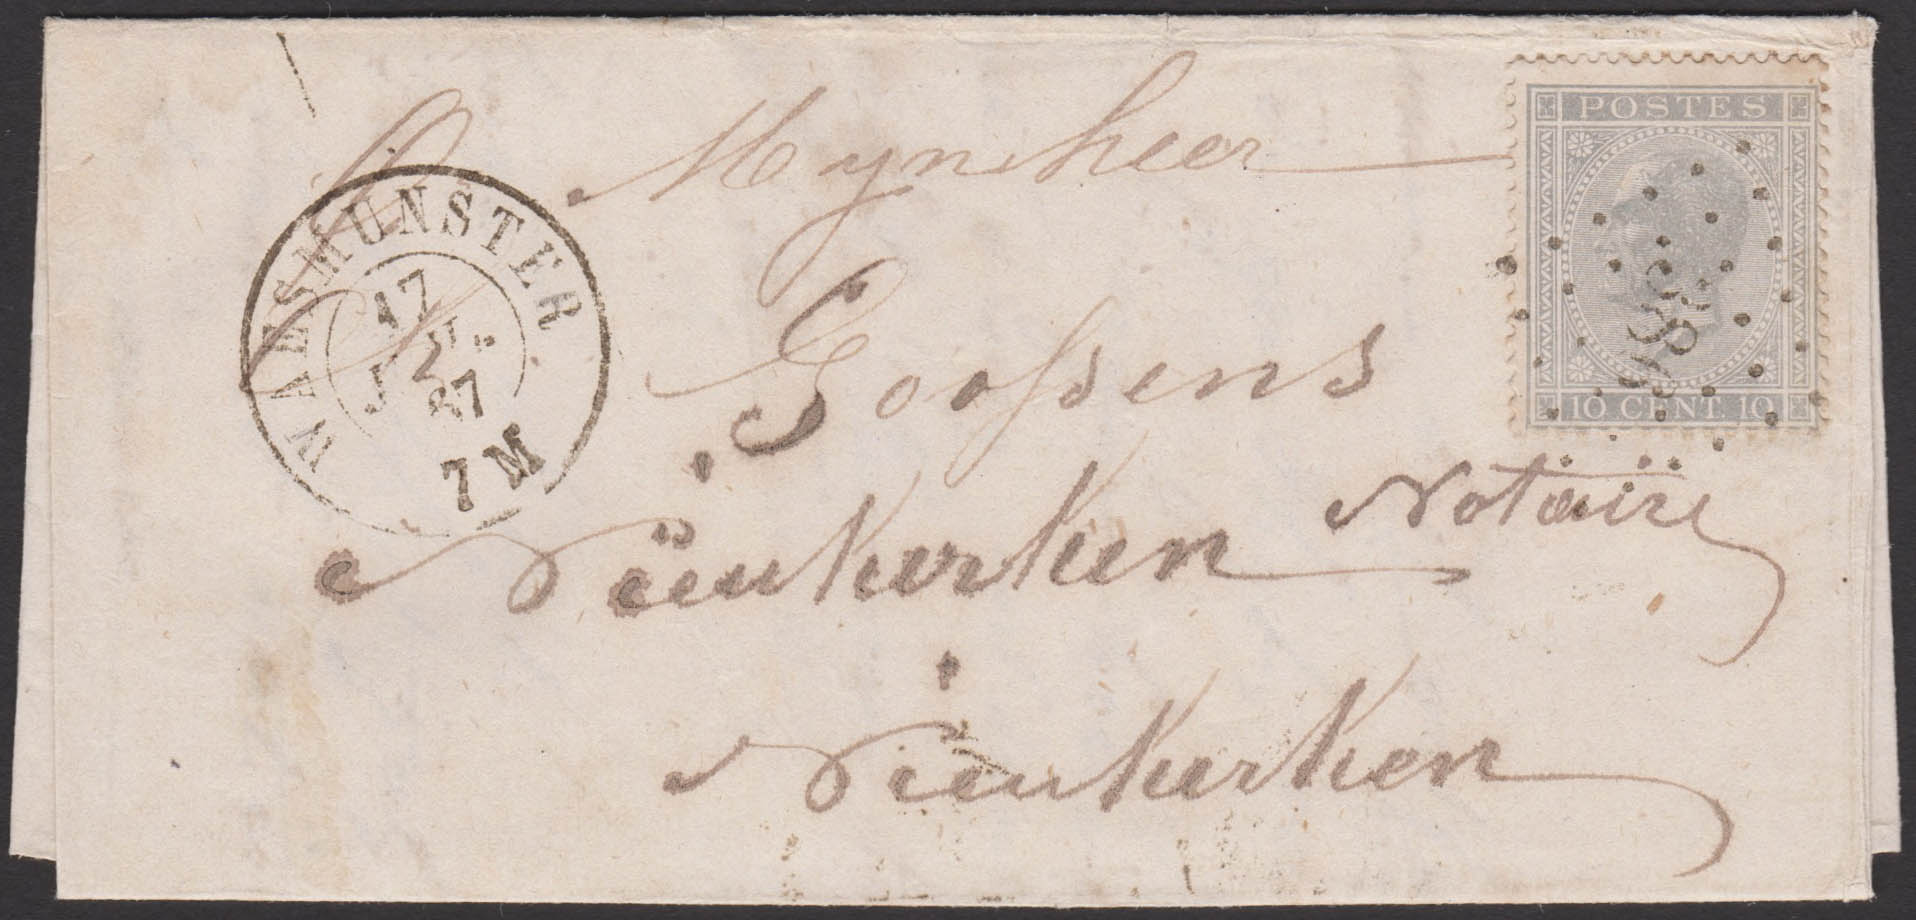 POSTES
Mynheer
WAESMUNSTER
17
JUIL.
67
7 M
386
10 CENT. 10
Goossens
Notaire
Nieukerken
Nieukerken